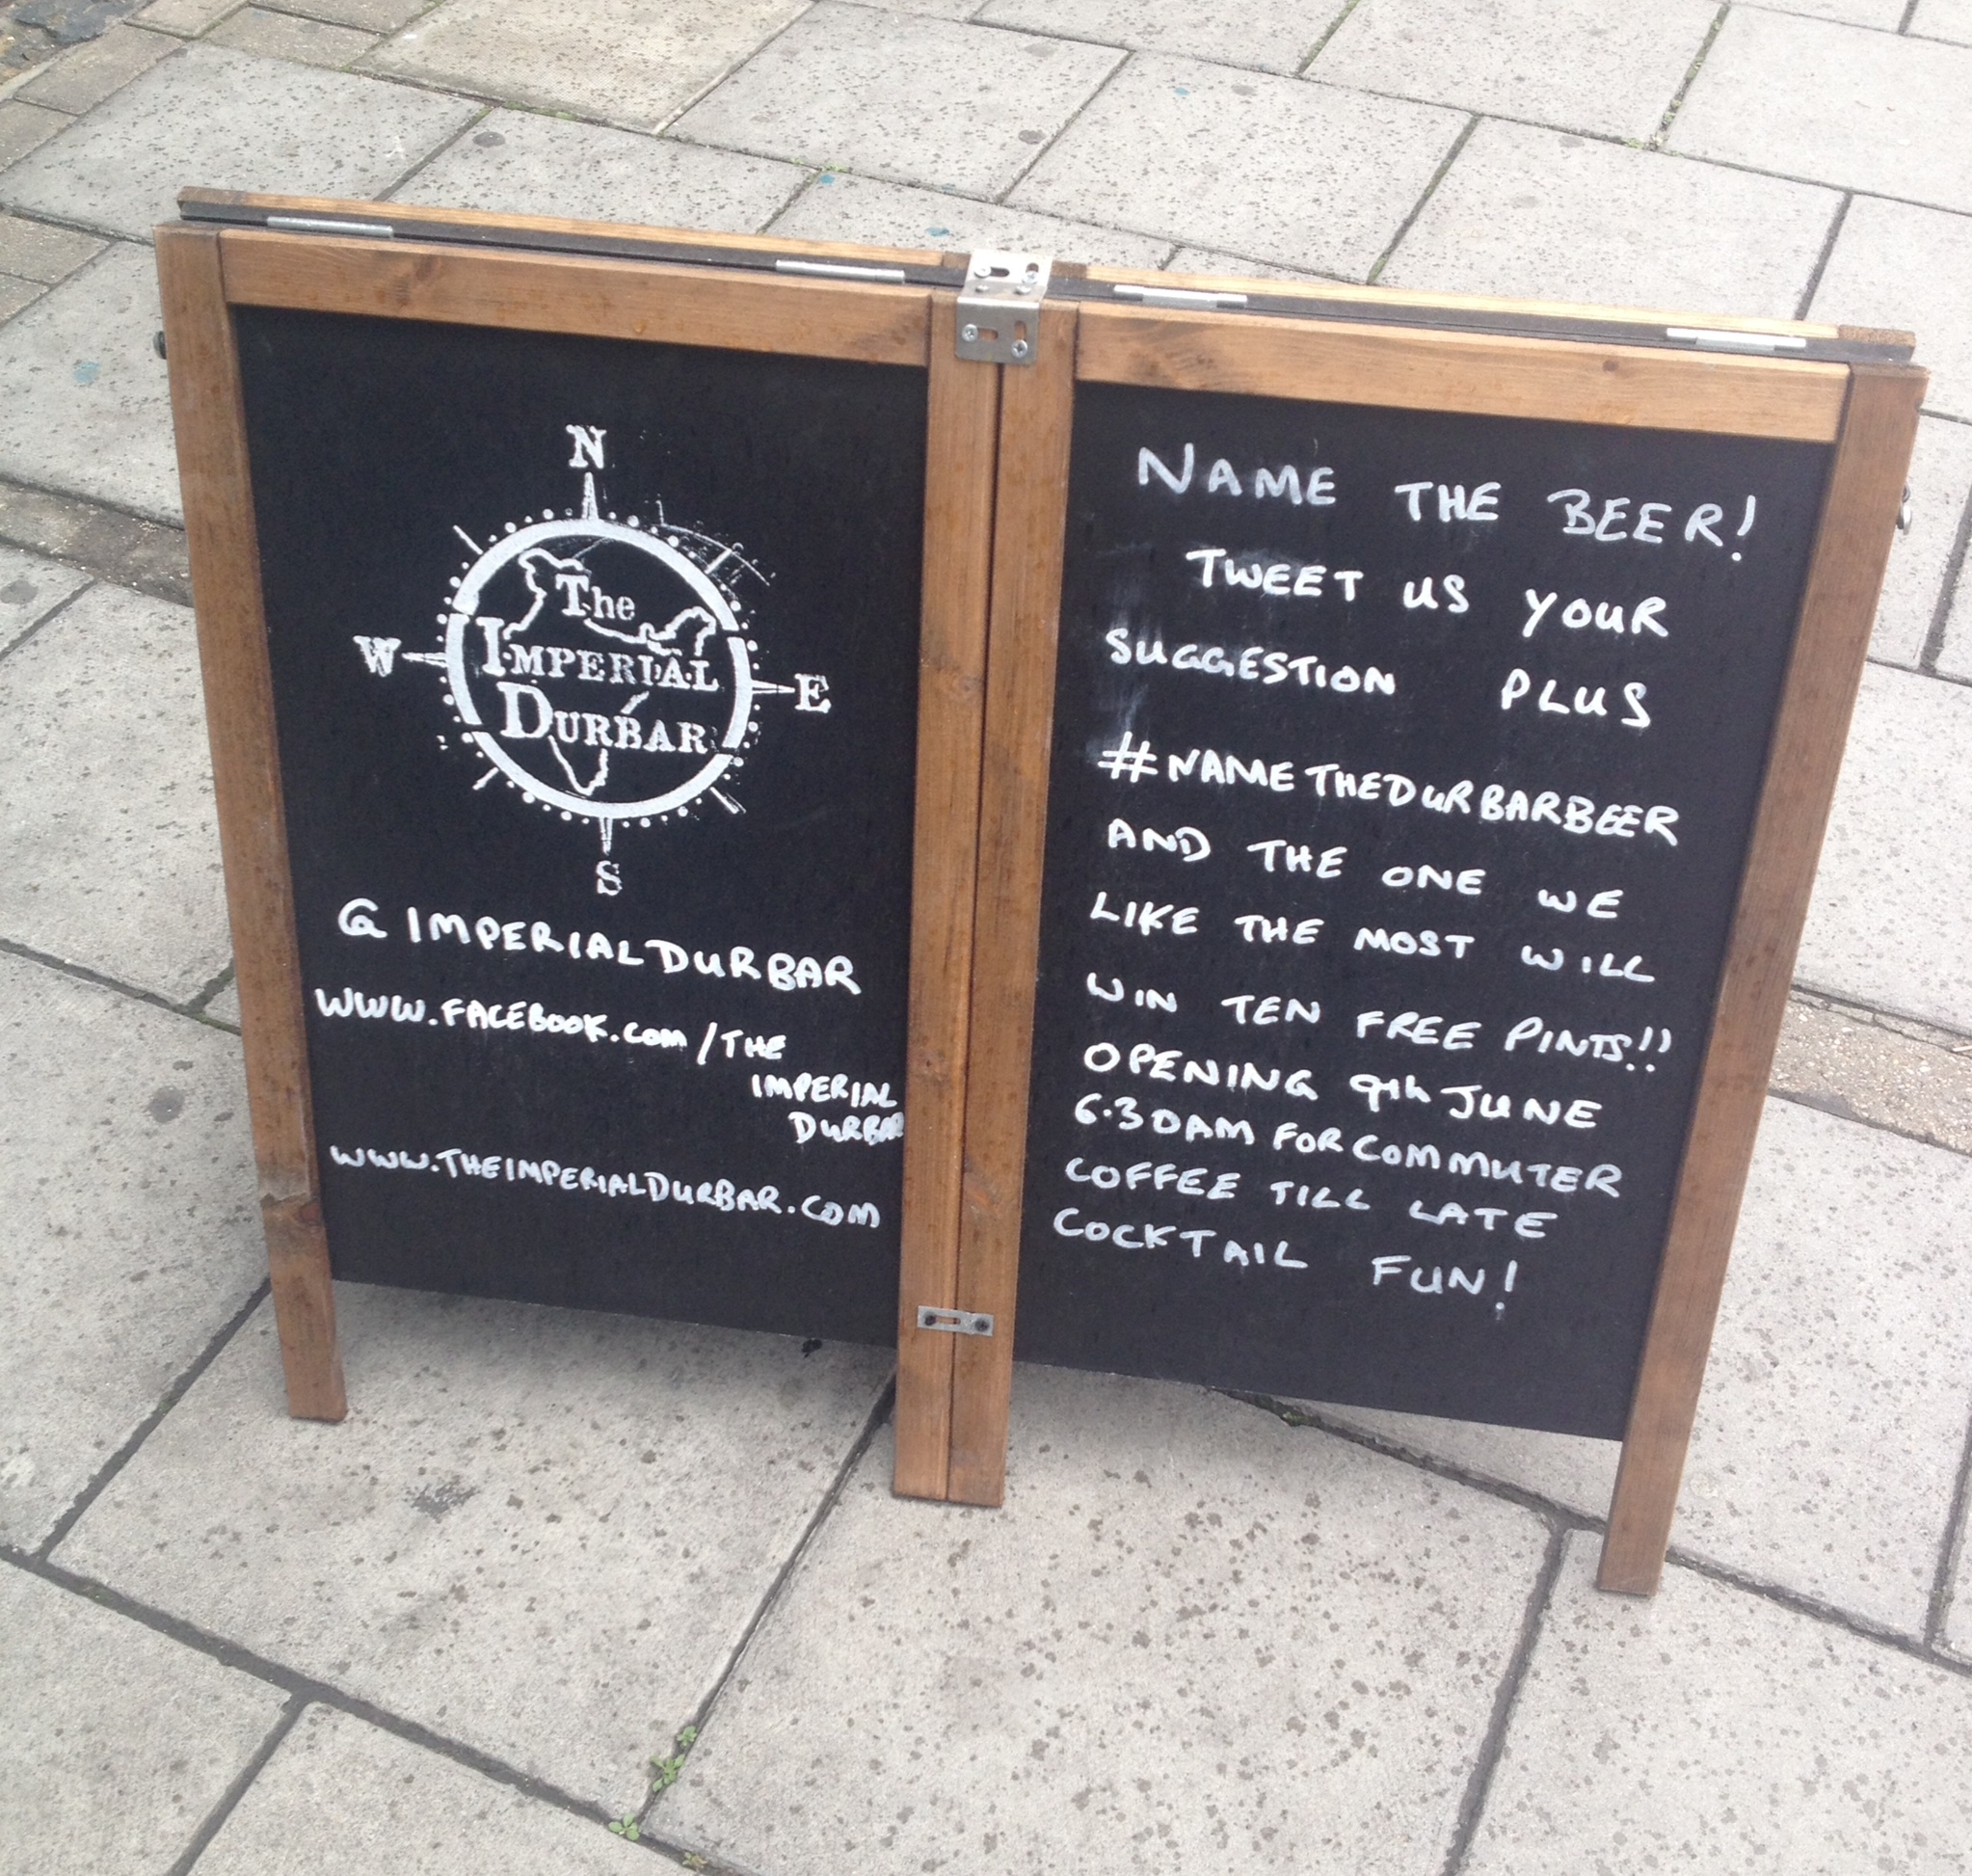 N
W
E
The
Imperial
Durbar
S
@IMPERIALDURBAR
WWW.FACEBOOK.COM/THE
IMPERIAL
DURBAR
WWW.THEIMPERIALDURBAR.COM
NAME THE BEER!
TWEET US YOUR
SUGGESTION PLUS
#NAMETHEDURBARBEER
AND THE ONE WE
LIKE THE MOST WILL
WIN TEN FREE PINTS!!
OPENING 9th JUNE
6.30AM FOR COMMUTER
COFFEE TILL LATE
COCKTAIL FUN!